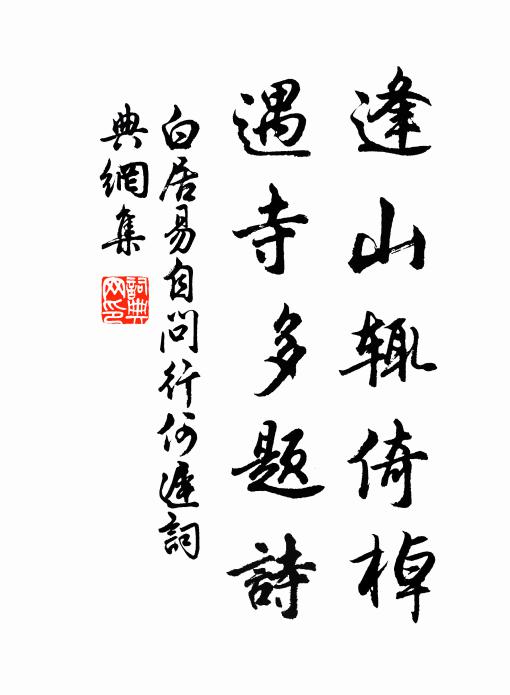 逢山辄倚棹
遇寺多題詩
白居易自問行何遲詞
典網集
詞典网印